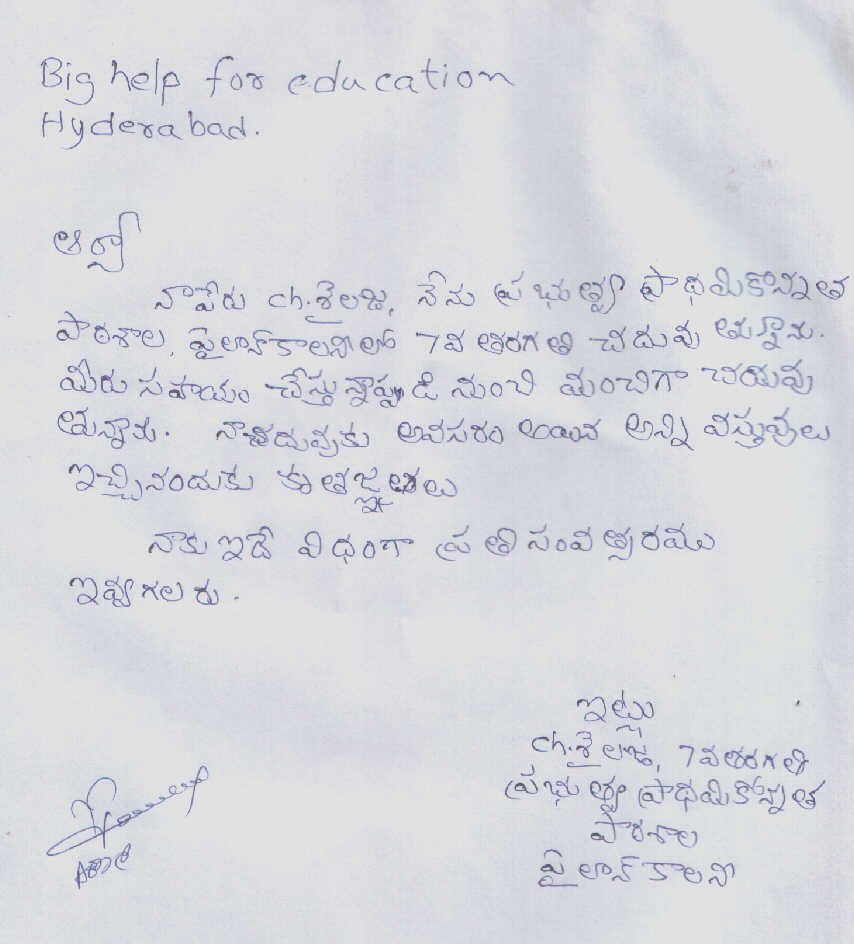 Big help for education
Hyderabad.
ఆర్యా
నాపేరు ch.శైలజ, నేను ప్రభుత్వ ప్రాథమికోన్నత
పాఠశాల, పైలాన్ కాలనీలో 7వ తరగతి చదువు తున్నాను.
మీరు సహాయం చేస్తున్నప్పడి నుంచి మంచిగా చదువు
తున్నాను. నాచదువుకు అవసరం అయిన అన్ని వస్తువులు
ఇచ్చినందుకు కృతజ్ఞతలు
నాకు ఇదే విధంగా ప్రతి సంవత్సరము
ఇవ్వగలరు.
ఇట్లు
ch.శైలజ, 7వ తరగతి
ప్రభుత్వ ప్రాథమికోన్నత
పాఠశాల
పైలాన్ కాలనీ